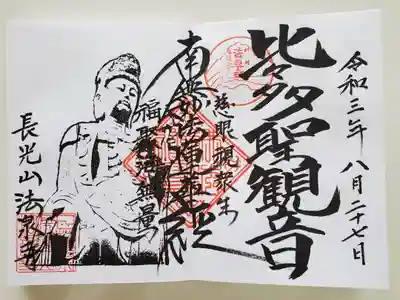 令和三年 八月二十七日
比多聖観音
慈眼視衆生
南無妙法蓮華経
福聚海無量
長光山法泉寺